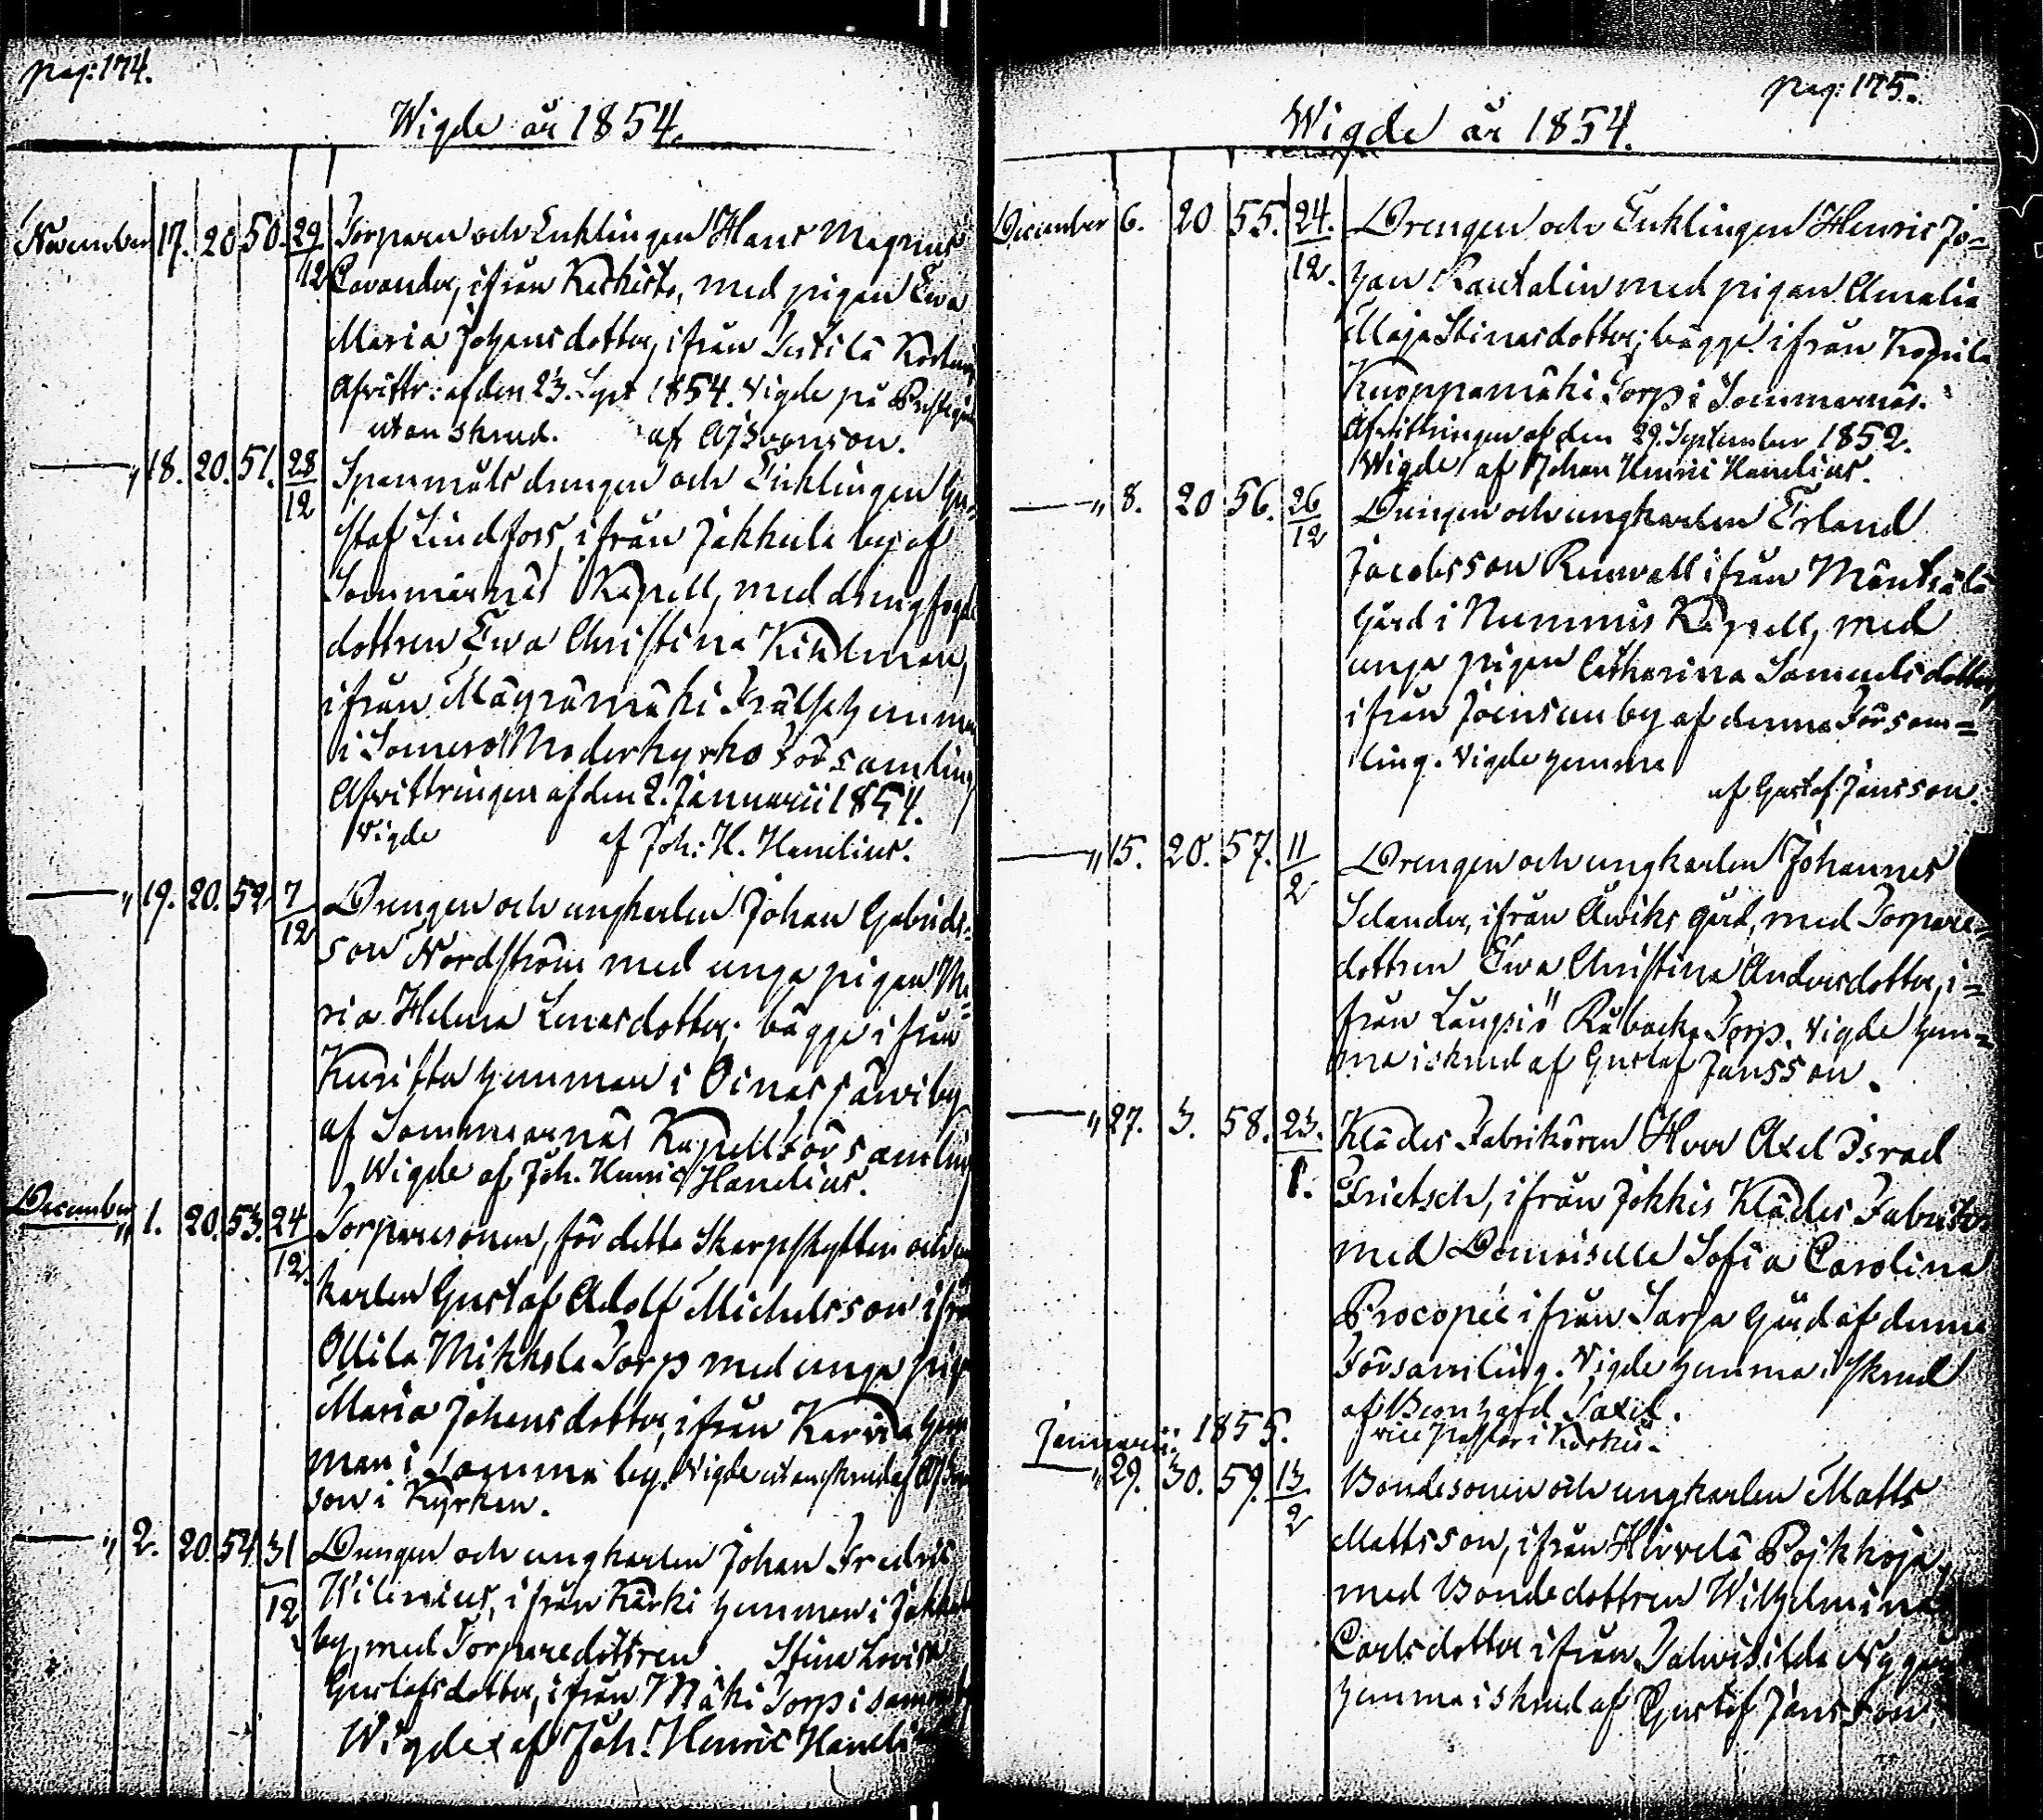 pag: 174.
Wigde år 1854.
November 17. 20 50. 29/12 Torparn och Enklingen Hans Magnus
Lavander, ifrån Kerkisto, med pigan Ewa
Maria Johansdotter, ifrån Intilä
Afvittr: af den 23. Sept 1854. Vigde på
utan skrud. af AJSvenson.
—„ 18. 20. 51. 28/12 Spanmåls drengen och Enklingen Gu-
staf Lindfors, ifrån Jakkula by af
Sommarnäs Kapell, med
dottren Ewa Christina Kindman,
ifrån Mäyrämäki Frälsehemman
i Somero Moderkyrko Församling
Afvittringen af den 2. Januarii 1854.
Vigde af Joh: H. Hanelius.
—„ 19. 20. 52 7/12 Drengen och ungkarlen Johan Gabriels-
son Nordström med unga pigan Ma-
ria Helena Lenasdotter; bägge ifrån
Kuritta hemman i Oinasjärvi by
af Sommarnäs Kapellförsamling
Wigde af Joh. Henric Hanelius.
December „ 1. 20. 53. 24/12. Torparesonen, för detta Skarpskytten och
karlen Gustaf Adolf Michelsson ifrån
Ollila Mikkola Torp med unga
Maria Johansdotter, ifrån Karvila
man i samma by. Vigde utan skrud af
son i Kyrkan.
—„ 2. 20. 54 31/12 Drengen och ungkarlen Johan Fredric
Wilenius, ifrån Kärki hemman i
by, med Torparedottren Stina Lovisa
Gustafsdotter, ifrån Mäki Torp i samma by
Wigde af Joh. Henric Hanelius
pag: 175.
Wigde år 1854.
December 6. 20 55. 24./12. Drengen och Enklingen Henric Jo-
han Rautelin med pigan Amalia
Maja Stinasdotter; bägge ifrån Kopila
Knoppamäki Torp i Sommarnäs.
Afvittringen af den 29. September 1852.
Wigde af Johan Henric Hanelius.
—„ 8. 20 56. 26/12 Drengen och ungkarlen Erland
Jacobsson Renvall ifrån Mäntsälä
Gård i Nummis Kapell, med
unga pigan Catharina Samuelsdotter,
ifrån Joensuu by af denna Försam-
ling. Vigde hemma
af Gustaf Jansson.
—„ 15. 20. 57. 11/2 Drengen och ungkarlen Johannes
Selander, ifrån Åwiks gård, med Torpare-
dottren Ewa Christina Andersdotter, i-
från Torp. Vigde hem-
ma i skrud af Gustaf Jansson.
—„ 27. 3. 58. 23./1. Klädes Fabrikören Herr Axel Israel
Frietsch, ifrån Jokkis Klädes Fabrik
med Demoiselle Sofia Carolina
Procopéé ifrån Sarja Gård af denna
Församling. Vigde hemma i skrud
af Bernhard Taxel.
vice Pastor i
Januarii. 1855.
—„ 29. 30. 59. 13/2 Bondesonen och ungkarlen Matts
Mattsson, ifrån Hirvelä Pojkkoja,
med Bondedottren Wilhelmina
Carlsdotter ifrån
hemma i skrud af Gustaf Jansson.